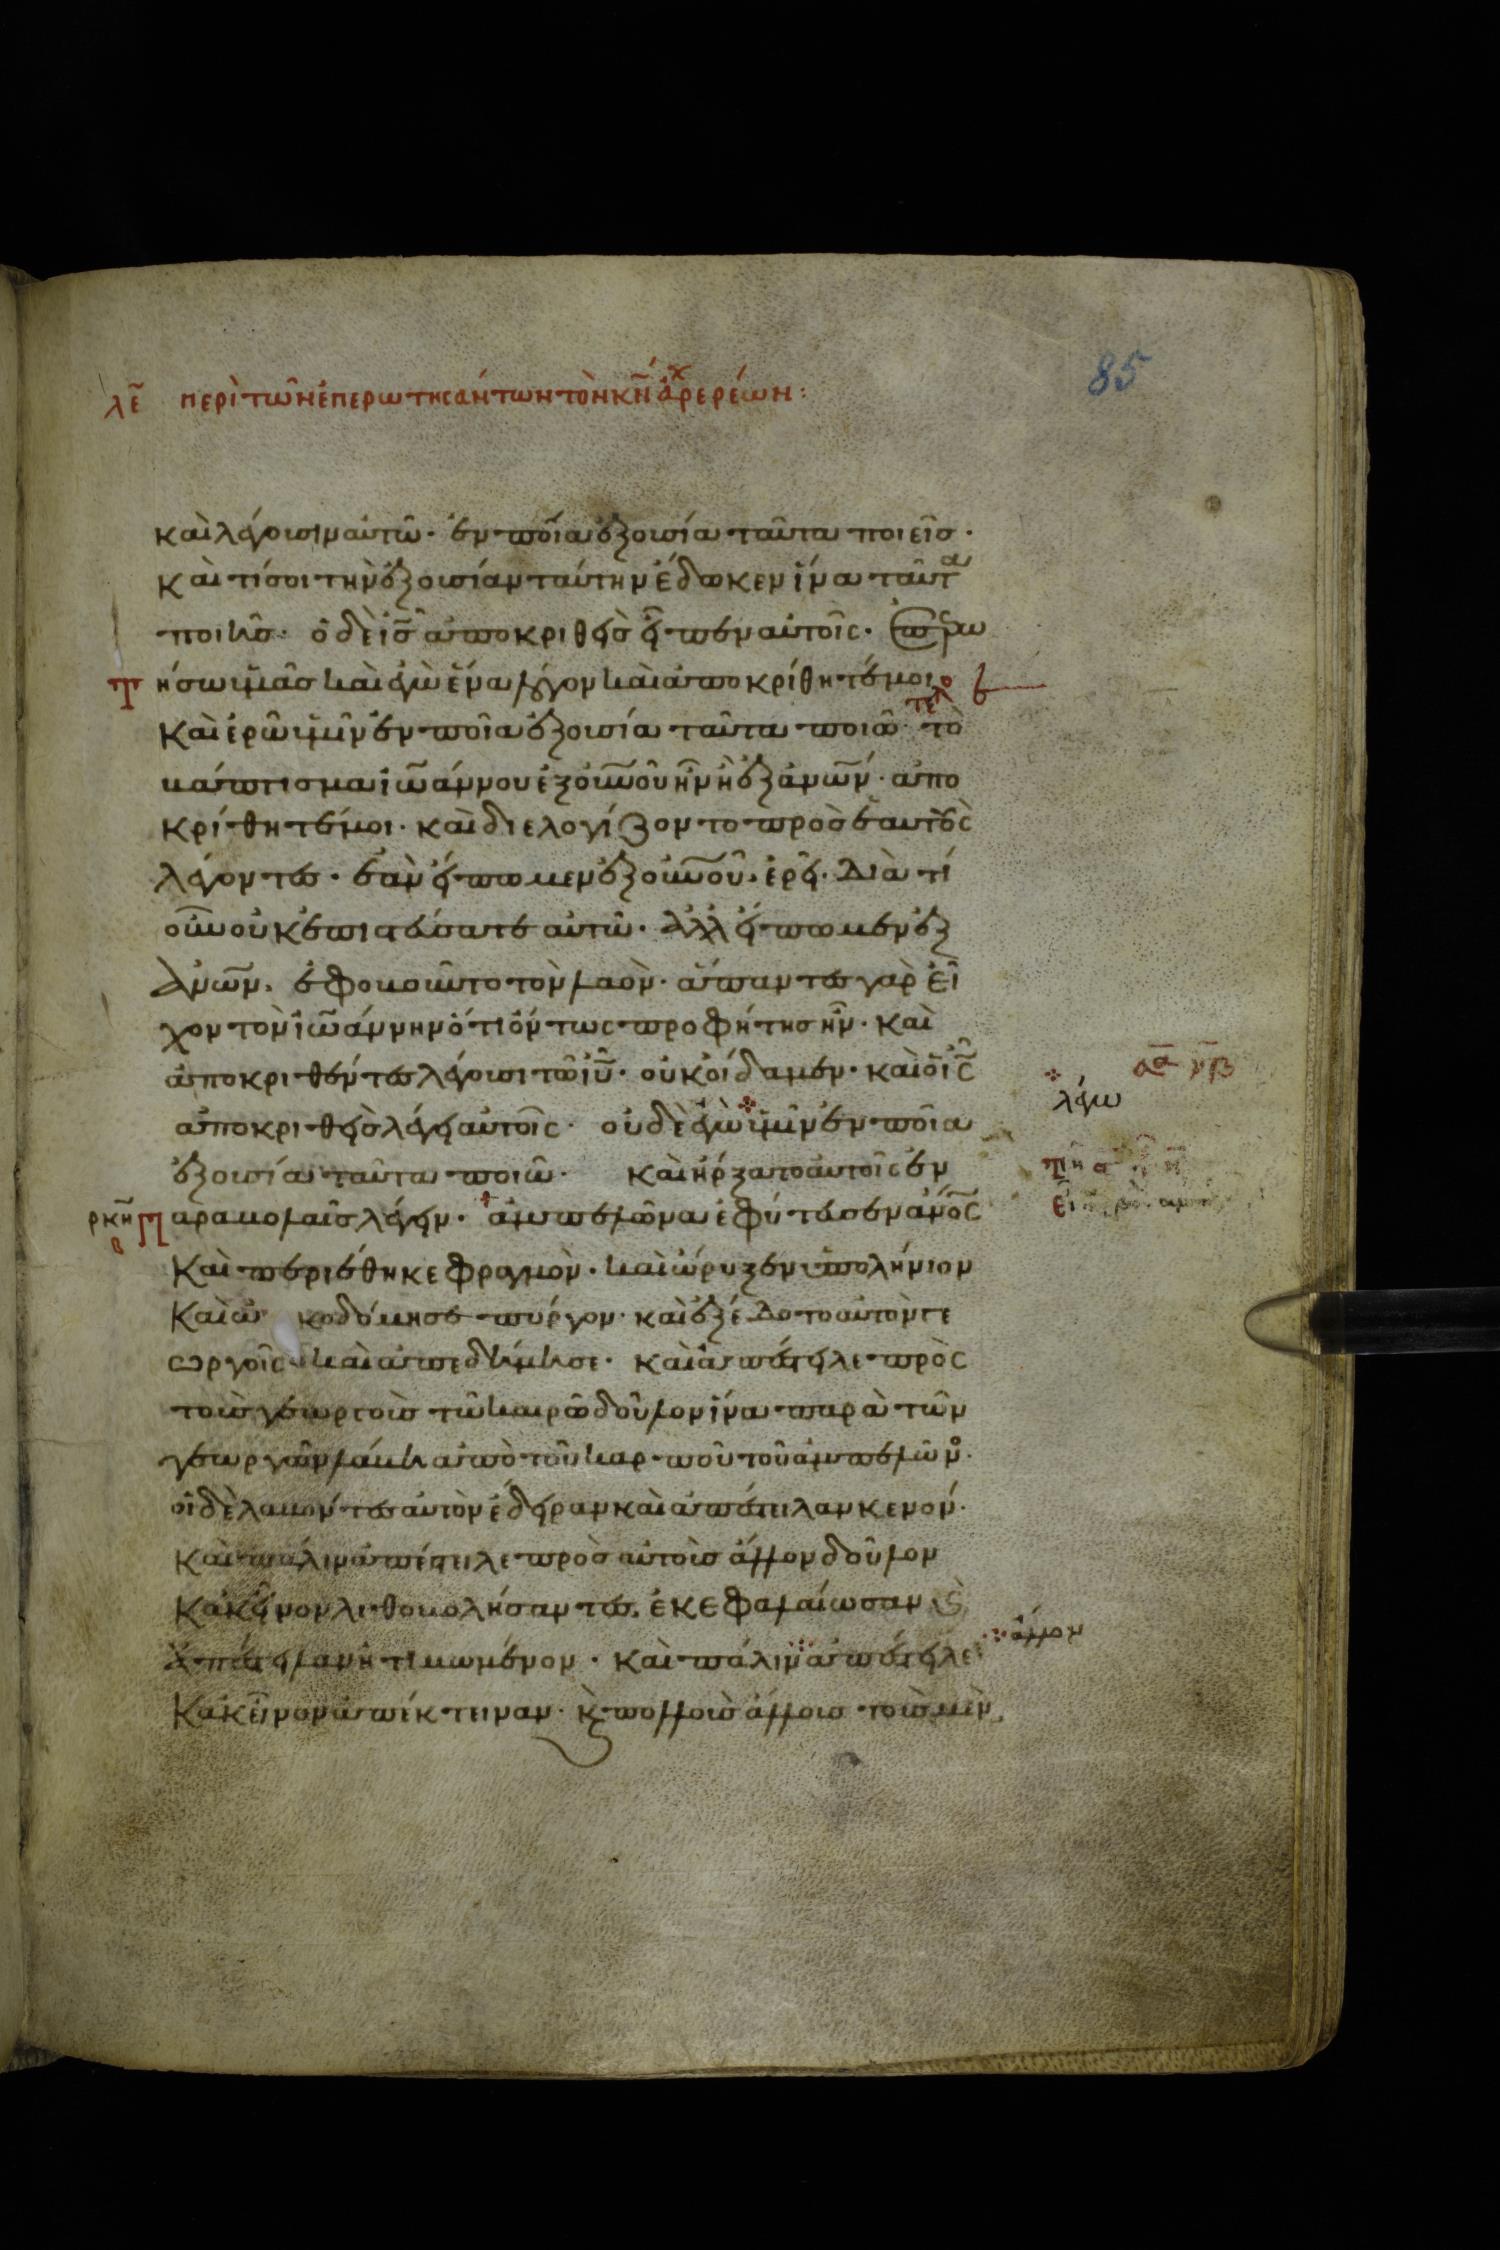 85
λε̄ περὶ τῶν ἐπερωτησάντων τὸν κν̄ ἀρχιερέων:
καὶ λέγουσιν αὐτῶ· ἐν ποία ἐξουσία ταῦτα ποιεῖσ·
καὶ τίσ σοι τὴν ἐξουσίαν ταύτην ἔδωκεν ἵνα ταῦτα
ποιῆσ· ὁ δὲ ἰς̄ ἀποκριθεὶσ εἶπεν αὐτοῖς· ἐπερω
τήσω ὑμᾶσ καὶ ἐγὼ ἕνα λόγον καὶ ἀποκρίθητέ μοι·
καὶ ἐρῶ ὑμῖν ἐν ποία ἐξουσία ταῦτα ποιῶ· τὸ
βάπτισμα ἰωάννου ἐξ οὐνοῦ ἦν ἢ ἐξ ἀνων̄· ἀπο
κρίθητέ μοι· καὶ διελογίζοντο πρὸσ ἑαυτοὺς
λέγοντεσ· ἐὰν εἴπωμεν ἐξ οὐνοῦ· ἐρεῖ· Διὰ τί
οὖν οὐκ ἐπιστεύσατε αὐτῶ· ἀλλ εἴπωμεν ἐξ
ἀνων̄· ἐφοβοῦντο τὸν λαὸν· ἅπαντεσ γὰρ εἶ
χον τὸν ἰωάννην ὅτι ὄντως προφήτησ ἦν· καὶ
ἀποκριθέντεσ λέγουσι τῶ ιῡ· οὐκ οἴδαμεν· καὶ ὁ ις̄
ἀποκριθεὶσ λέγει αὐτοῖς· οὐδὲ ἐγὼ ὑμῖν ἐν ποία
λέγω
ἐξουσία ταῦτα ποιῶ· καὶ ἤρξατο αὐτοῖς ἐν
ρκη̄ β παραβολαῖσ λέγειν· ἀμπελῶνα ἐφύτευσεν ἀνος̄
καὶ περιέθηκε φραγμὸν· καὶ ὤρυξεν ὑπολήνιον
καὶ ὠκοδόμησε πύργον· καὶ ἐξέδοτο αὐτὸν γε
ωργοῖς· καὶ ἀπεδήμησε· καὶ ἀπέστειλε πρὸς
τοὺσ γεωργοὺσ τῶ καιρῶ δοῦλον ἵνα παρὰ τῶν
γεωργῶν λάβη ἀπὸ τοῦ καρποῦ τοῦ ἀμπελῶνο·
οἱ δὲ λαβόντεσ αὐτὸν ἔδειραν καὶ ἀπέστειλαν κενόν·
καὶ πάλιν ἀπέστειλε πρὸσ αὐτοὺσ ἄλλον δοῦλον
κἀκεῖνον λιθοβολήσαντεσ, ἐκεφαλαίωσαν ϗ
ἀπέστειλαν ἠτιμωμένον· καὶ πάλιν ἀπέστειλε
ἄλλον
κἀκεῖνον ἀπέκτειναν· ϗ πολλοὺσ ἄλλουσ τοὺσ μὲν